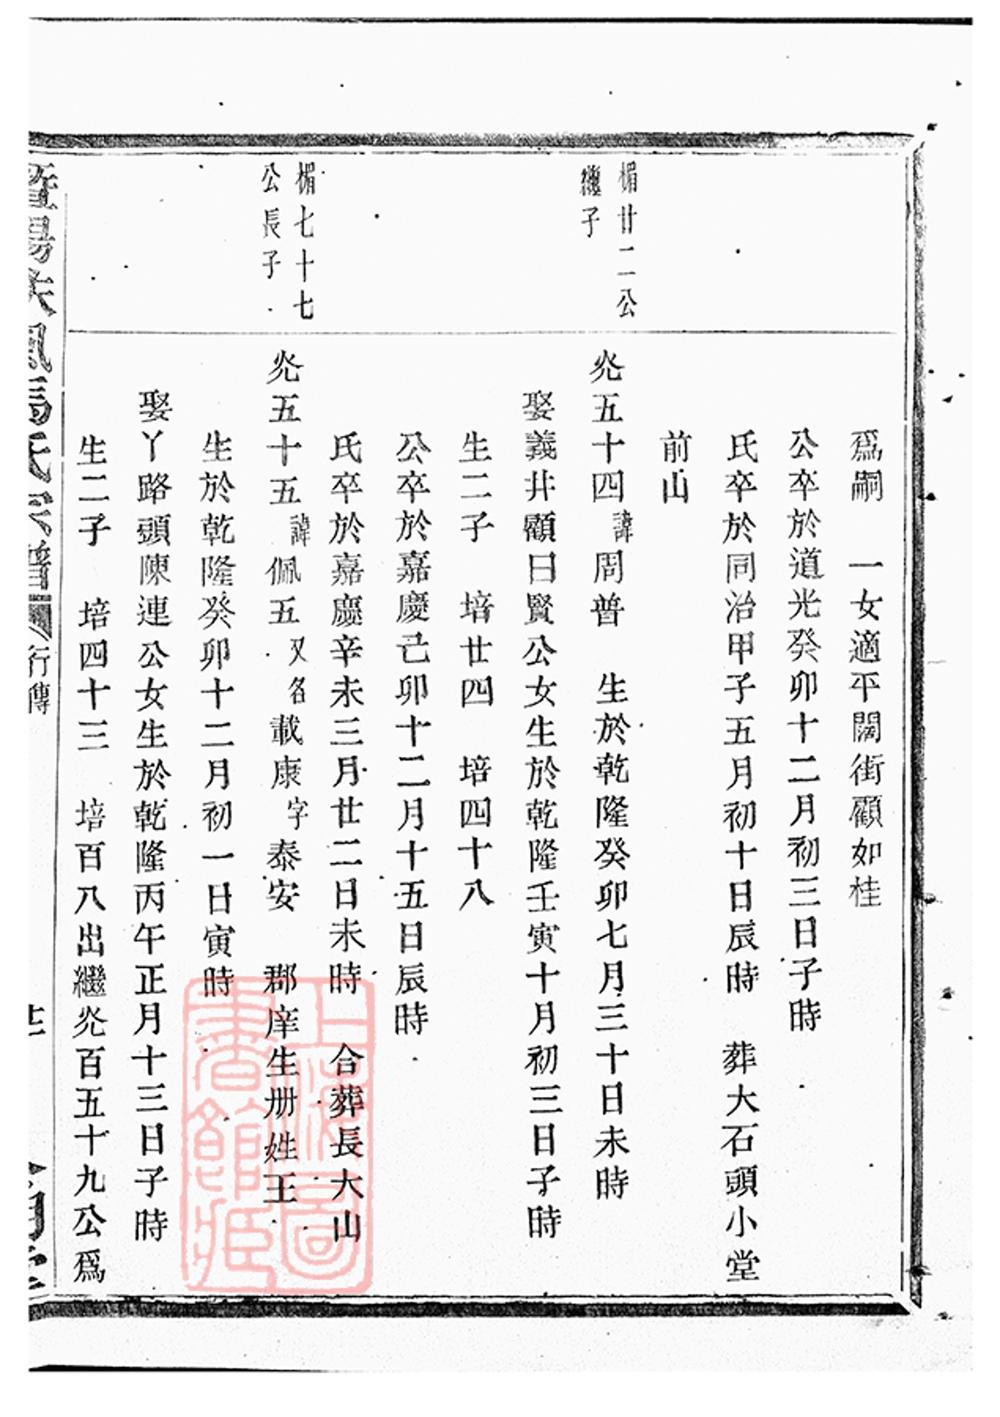 爲嗣　一女適平闊街顧如桂
公卒於道光癸卯十二月初三日子時
氏卒於同治甲子五月初十日辰時　葬大石頭小堂
前山
楣廿二公
繼子
灮五十四諱周普　生於乾隆癸卯七月三十日未時
娶義井顧曰賢公女生於乾隆壬寅十月初三日子時
生二子　培廿四　培四十八
公卒於嘉慶己卯十二月十五日辰時
氏卒於嘉慶辛未三月廿二日未時　合葬長大山
楣七十七
公長子
灮五十五諱佩五又名載康字泰安　郡庠生册姓王
生於乾隆癸卯十二月初一日寅時
娶丫路頭陳連公女生於乾隆丙午正月十三日子時
生二子　培四十三　培百八出繼灮百五十九公爲
暨陽扶風馬氏宗譜
行傳
上海圖
書館藏